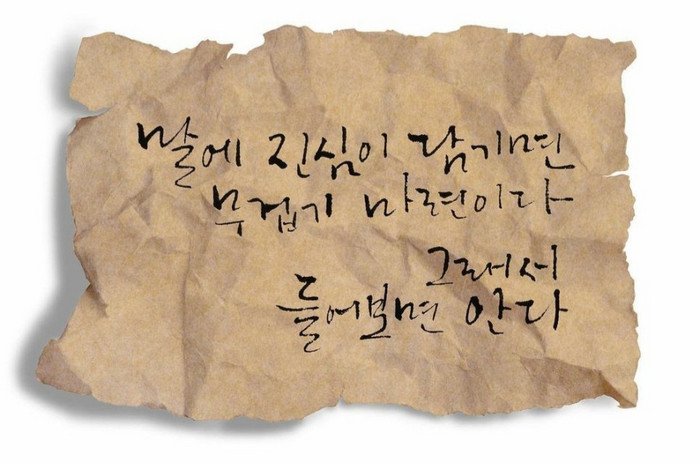 말에 진심이 담기면
무겁기 마련이다
그래서
들어보면 안다